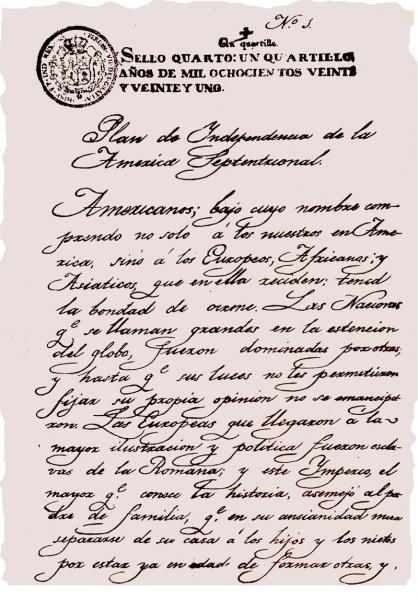 N.o 1.
Un quartillo.
SELLO QUARTO: UN QUARTILLO
AÑOS DE MIL OCHOCIENTOS VEINTE
Y VEINTE Y UNO.
Plan de Independencia de la
America Septentrional.
Americanos; bajo cuyo nombre com
prendo no solo á los nuestros en Ame
rica, sino á los Europeos, Africanos; y
Asiaticos, que en ella reciden: tened
la bondad de oirme. Las Naciones
q.e se llaman grandes en la estencion
del globo, fueron dominadas por otras;
y hasta q.e sus luces no les permitieron
fijar su propia opinion no se emancipa
ron. Las Europeas que llegaron á la
mayor ilustracion y politica fueron escla
vas de la Romana; y este Imperio, el
mayor q.e conoce la historia, asemejó al pa
dre de familia, q.e en su ansianidad mira
separarse de su casa á los hijos y los nietos
por estar ya en edad de formar otras, y